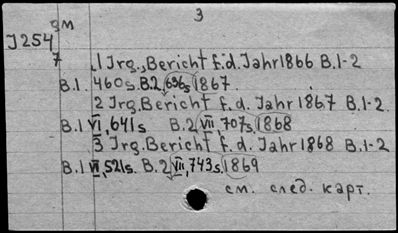 3
gм
J254
7
1 Jrg., Bericht f.d. Jahr 1866 B.1-2
B.1. 460s. B.2, 636s 1867
2 Jrg. Bericht f. d. Jahr 1867 B.1-2.
B.1 VI, 641s B.2 VII, 707s. 1868
3 Jrg. Bericht f. d. Jahr 1868 B.1-2
B.1 VI, 521s. B.2 VII, 743s. 1869
см. след. карт.